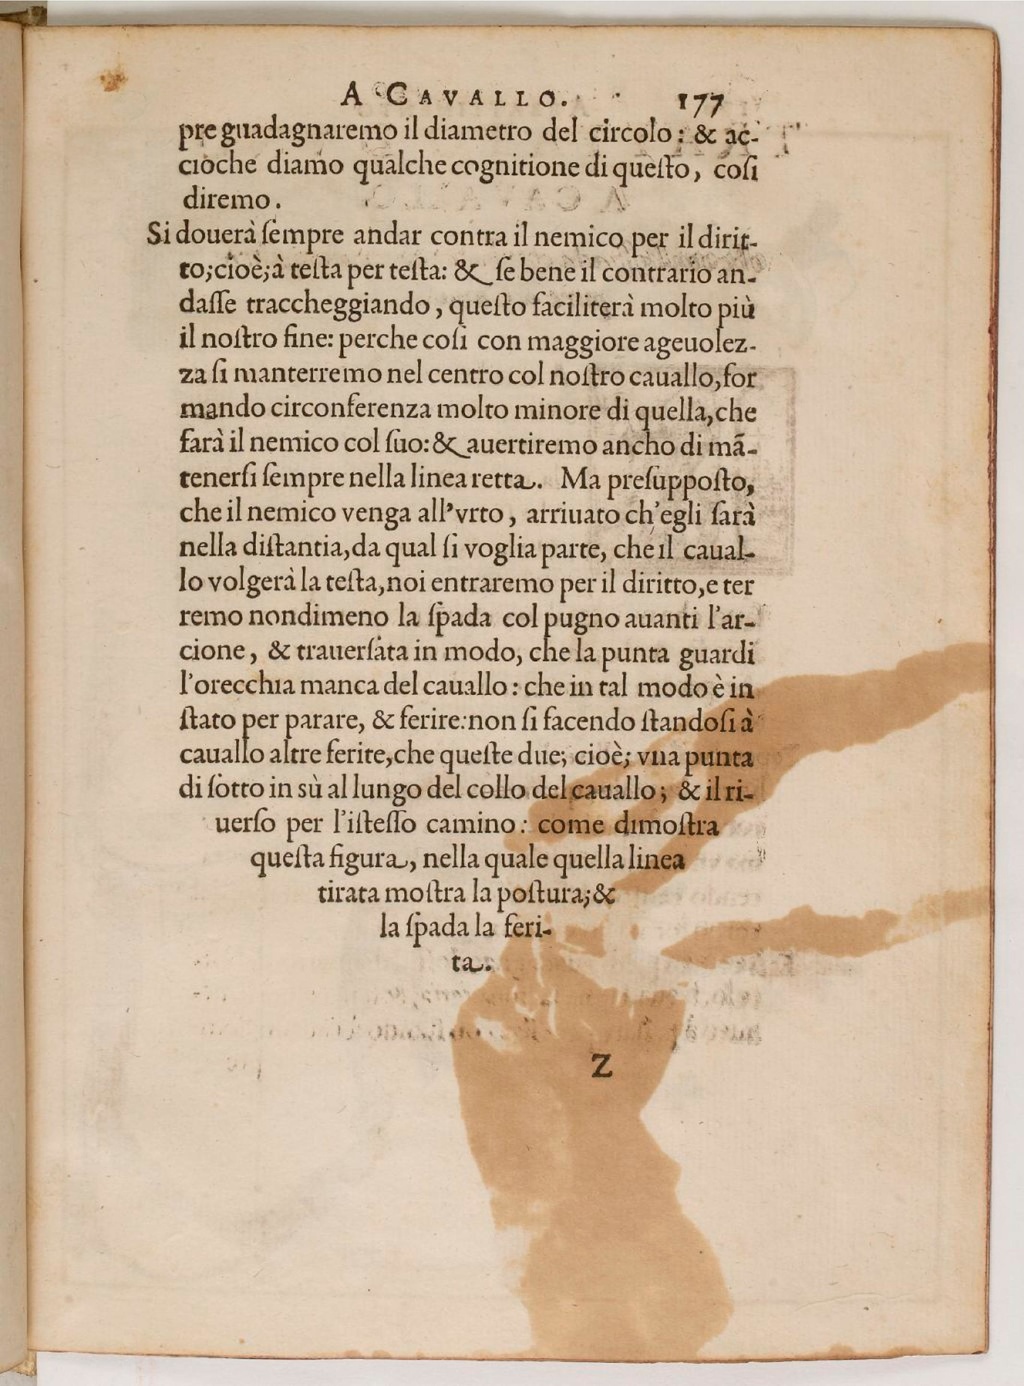 A CAVALLO. 177
pre guadagnaremo il diametro del circolo: & ac-
cioche diamo qualche cognitione di questo, cosi
diremo.
Si douerà sempre andar contra il nemico per il dirit-
to; cioè; à testa per testa: & se bene il contrario an-
dasse traccheggiando, questo faciliterà molto più
il nostro fine: perche cosi con maggiore ageuolez-
za si manterremo nel centro col nostro cauallo, for
mando circonferenza molto minore di quella, che
farà il nemico col suo: & auertiremo ancho di mã-
tenersi sempre nella linea retta. Ma presupposto,
che il nemico venga all'vrto, arriuato ch'egli sarà
nella distantia, da qual si voglia parte, che il caual-
lo volgerà la testa, noi entraremo per il diritto, e ter
remo nondimeno la spada col pugno auanti l'ar-
cione, & trauersata in modo, che la punta guardi
l'orecchia manca del cauallo: che in tal modo è in
stato per parare, & ferire: non si facendo standosi à
cauallo altre ferite, che queste due; cioè; vna punta
di sotto in sù al lungo del collo del cauallo; & il ri-
uerso per l'istesso camino: come dimostra
questa figura, nella quale quella linea
tirata mostra la postura; &
la spada la feri-
ta.
Z